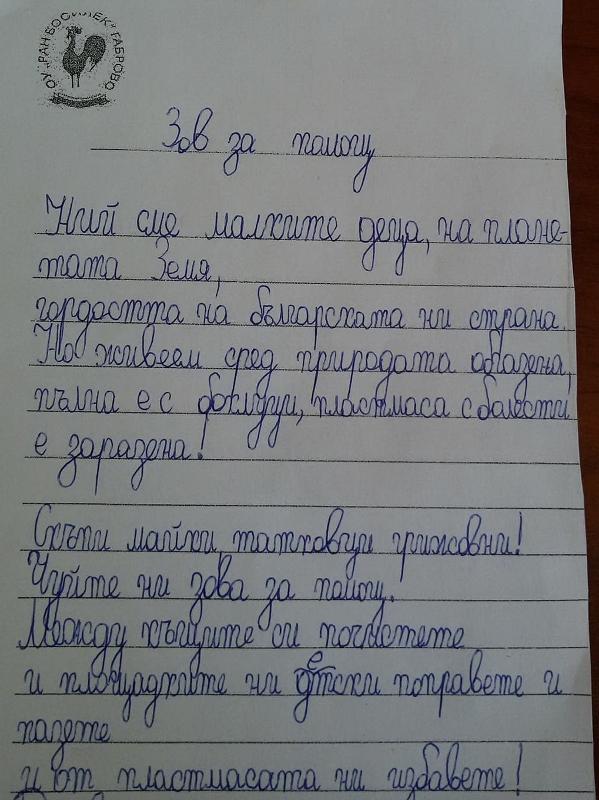 ОУ „РАН БОСИЛЕК“ ГАБРОВО
Зов за помощ
Ний сме малките деца, на плане-
тата Земя,
гордостта на българската ни страна.
Но живеем сред природата опазена,
пълна е с боклуци, пластмаса с болести
е заразена!
Скъпи майки, татковци грижовни!
Чуйте ни зова за помощ.
Между къщите си почистете
и площадките ни детски поправете и
пазете
и от пластмасата ни избавете!